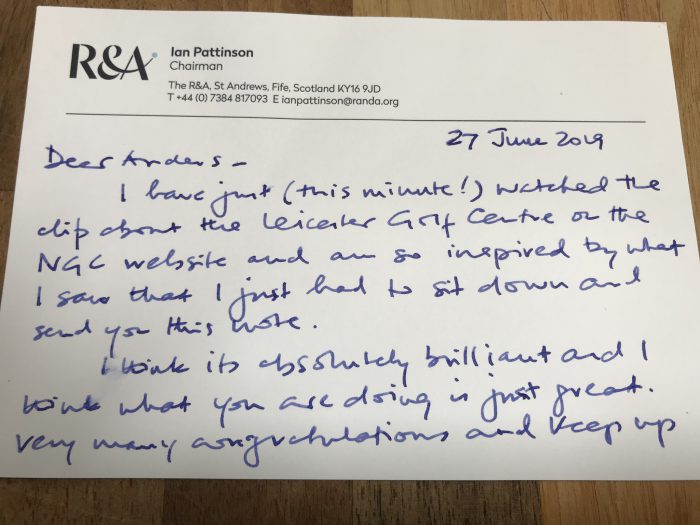 R&A
Ian Pattinson
Chairman
The R&A, St Andrews, Fife, Scotland KY16 9JD
T +44 (0) 7384 817093 E ianpattinson@randa.org
27 June 2019
Dear Anders –
I have just (this minute!) watched the
clip about the Leicester Golf Centre on the
NGC website and am so inspired by what
I saw that I just had to sit down and
send you this note.
I think its absolutely brilliant and I
think what you are doing is just great.
Very many congratulations and keep up